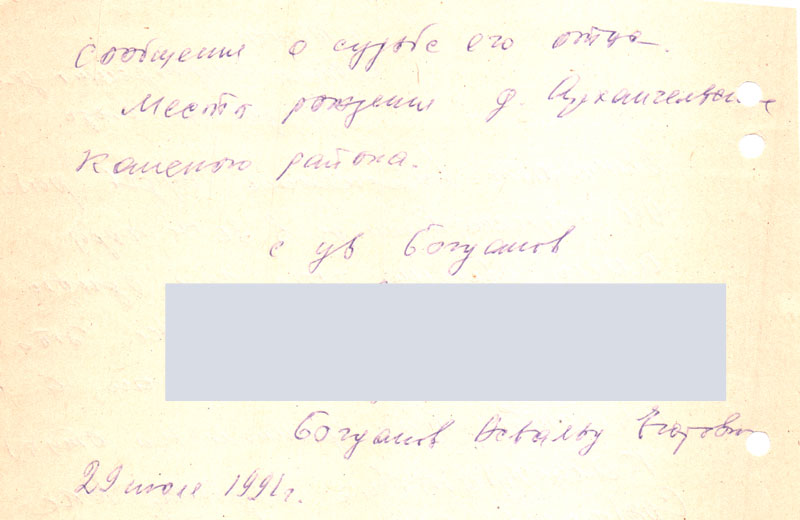 Сообщения о судьбе его отца.
Место рождения д. Архангельское
Каменского района.
с ув Богданов
Богданов Освальд Егорович
29 июля 1991г.